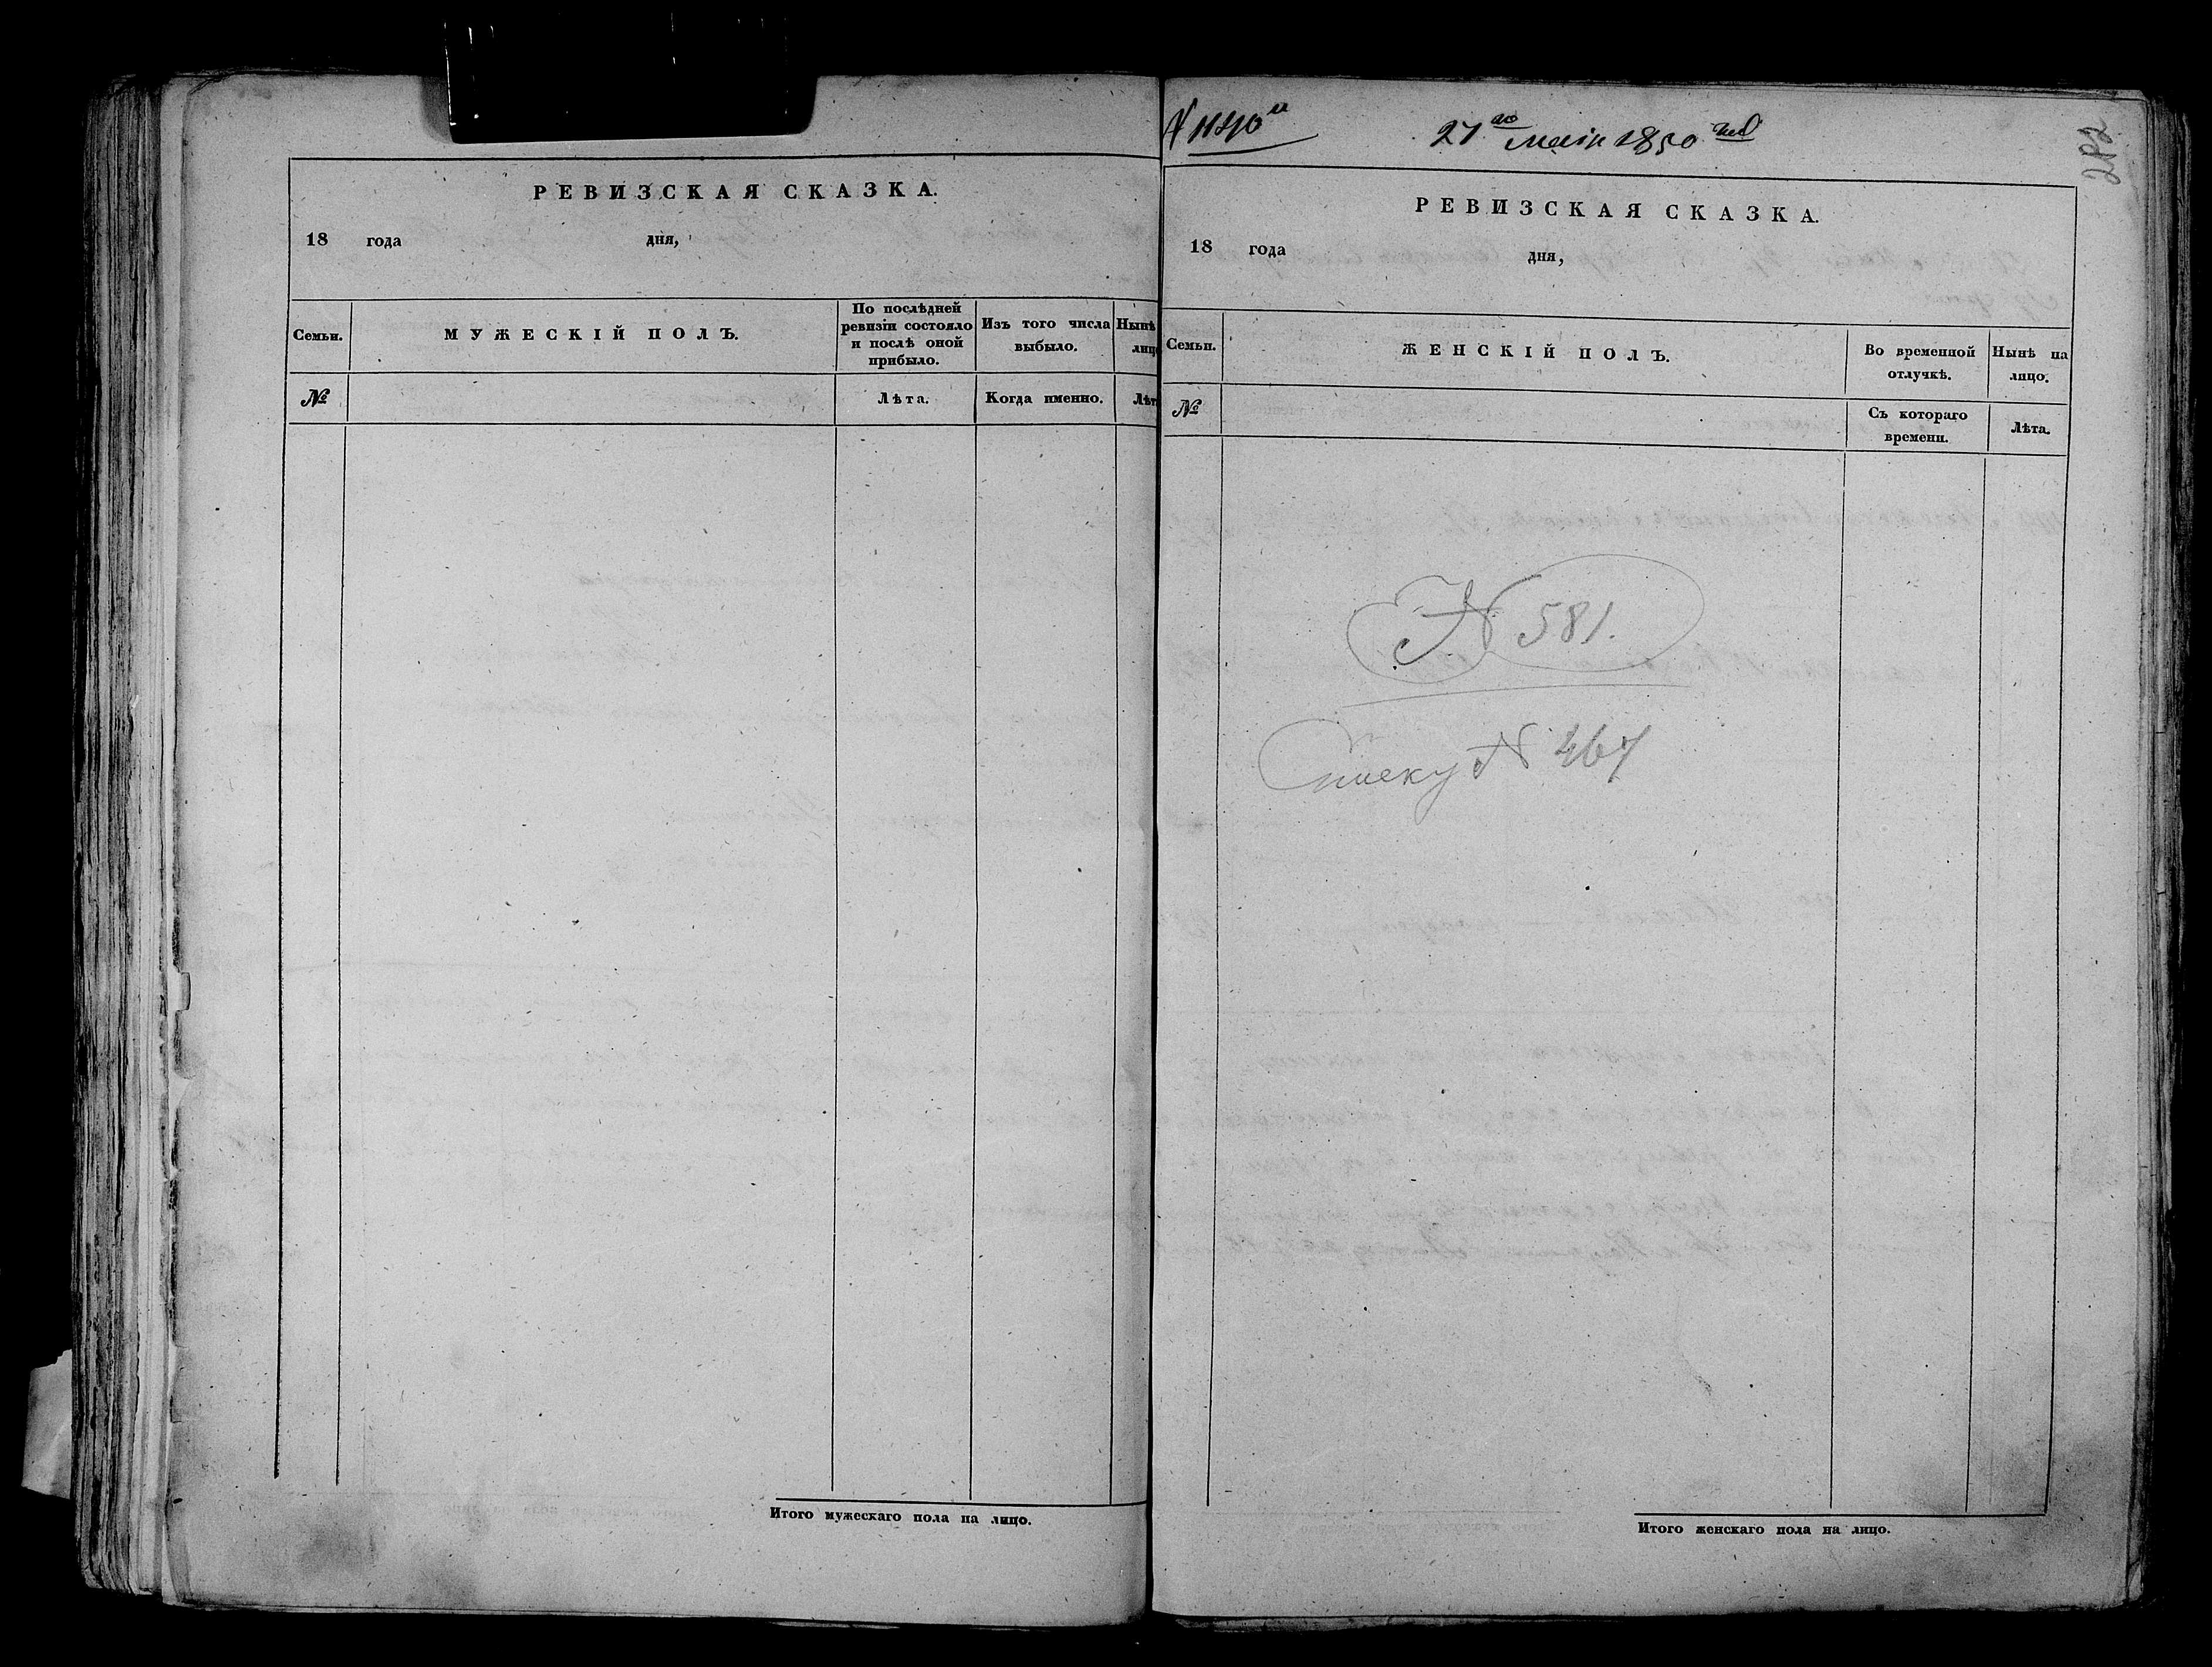 РЕВИЗСКАЯ СКАЗКА.
18 года дня,
Семьи.
МУЖЕСКІЙ ПОЛЪ.
По послѣдней
ревизіи состояло
и послѣ оной
прибыло.
Изъ того числа
выбыло.
Нынѣ
лицо
№
Лѣта.
Когда именно.
Лѣт
Итого мужескаго пола на лицо.
27го маія 1850
282
РЕВИЗСКАЯ СКАЗКА.
18 года дня,
Семьи.
ЖЕНСКІЙ ПОЛЪ.
Во временной
отлучкѣ.
Нынѣ на
лицо.
№
Съ котораго
времени.
Лѣта.
N 581.
Списку N 467
Итого женскаго пола на лицо.